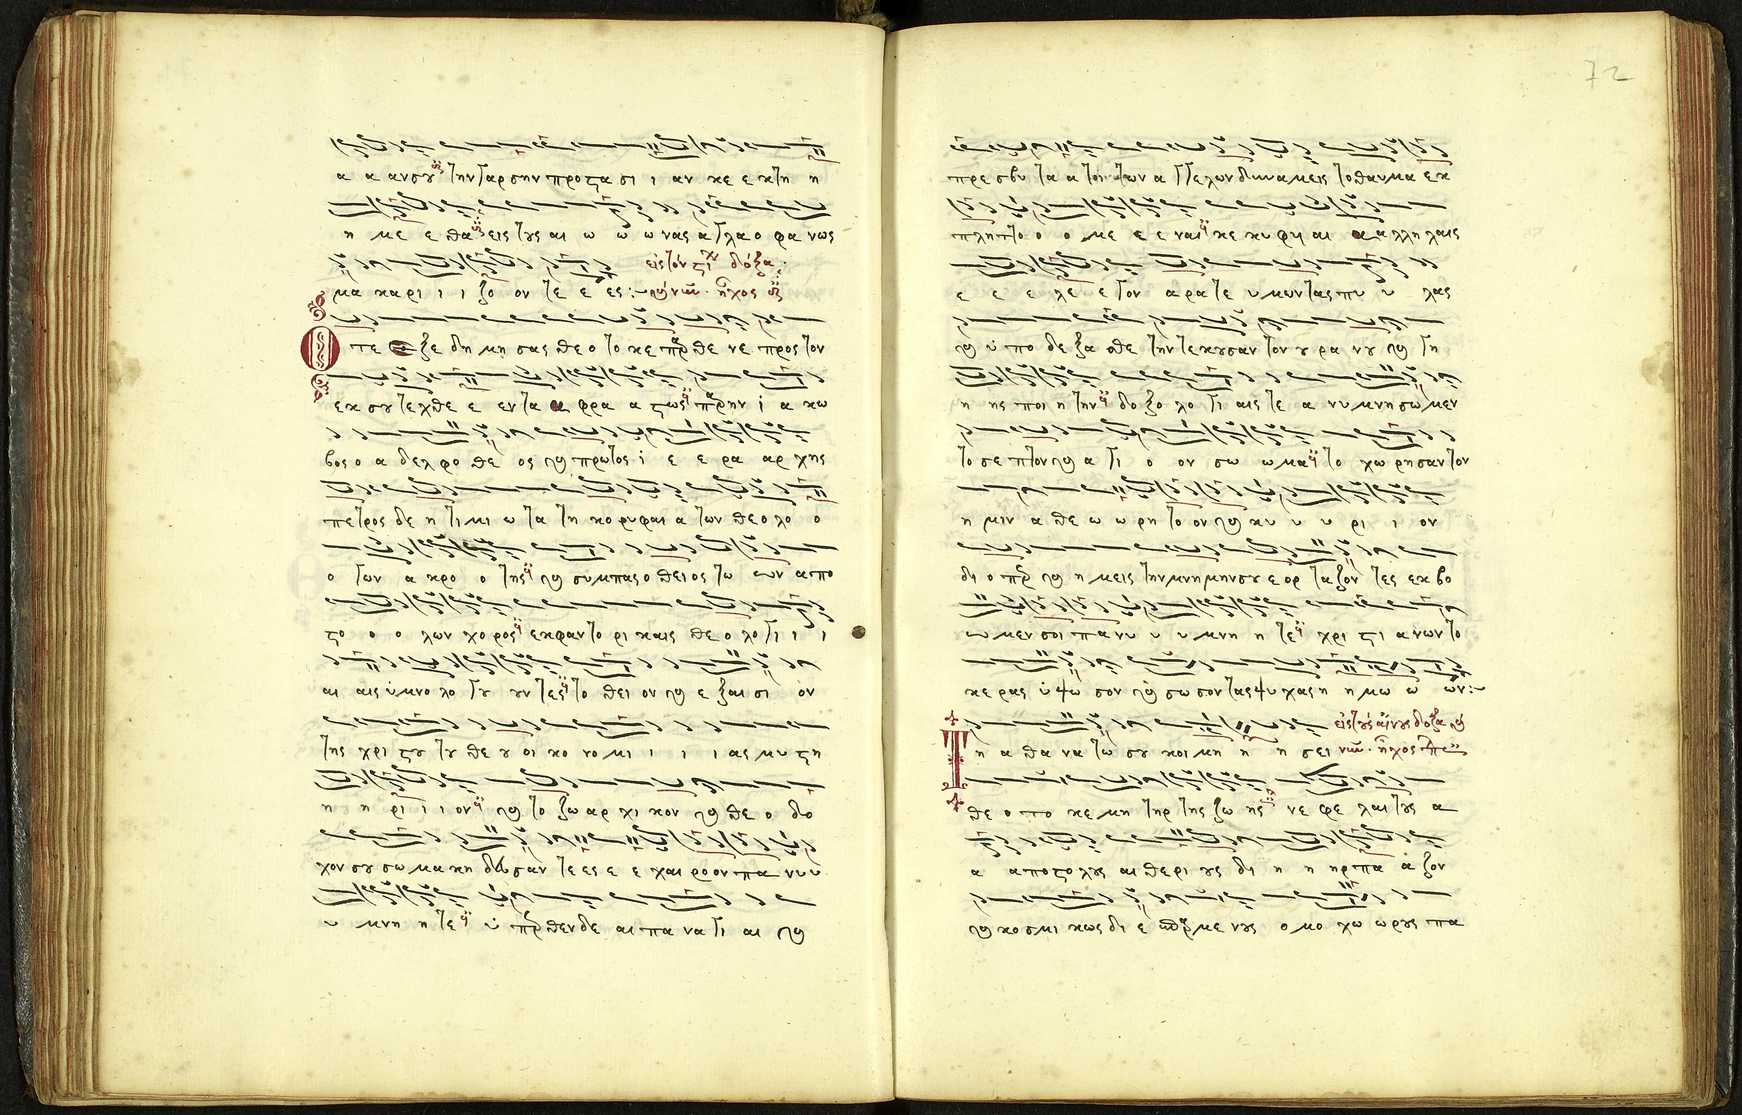 α α αν σου την γαρ σην προστασι ι αν κε εκτη η
η με ε θα εις τους αι ω ω ω νας α γλα ο φα νως
μα κα ρι ι ι ζο ον τε ε ες : εις τον στιχον δοξα
και νυν · ηχος
Οτε εξε δη μη σας θε ο το κε παρθε νε προς τον
εκ σου τεχθε ε εν τα α φρα α στως παρην ι α κω
βος ο α δελφο θε ος και πρωτος ι ε ε ρα αρ χης
πετρος δε η τι μι ω τα τη κο ρυφαι α των θε ο λο ο
ο γων α κρο ο της και συμπας ο θειος τω ων απο
στο ο ο λων χο ρος εκφαν το ρι καις θε ο λο γι ι ι
αι αις υμνο λο γου ουν τες το θει ον και ε ξαισι ον
της χρι στου του θε ου οι κο νο μι ι ι ι ας μυ στη
η η ρι ι ι ον και το ζω αρ χι κον και θε ο δο
χον σου σωμα κη δευσαν τε ες ε ε χαι ρο ον πα νυ υ
υ μνη η τε υ παρθεν δε αι πα να γι αι και
72
πρε σβυ τα α τοι των α γγε λων δυναμεις το θαυμα εκ
πλητ το ο ο με ε ε ναι κε κυφυι αι α α λλη λαις
ε ε ε λε ε γον αρα τε υ μων τας πυ υ λας
και υ πο δε ξα σθε την τεκουσαν τον ου ρα νου και γη
η ης ποι η την δο ξο λο γι αις τε α νυ μνη σω μεν
το σεπτον και α γι ο ον σω ω μα το χωρησαν τον
η μιν α θε ω ω ρη το ον και κυ υ υ ρι ι ον
δι ο περ και η μεις την μνημην σου ε ορ ταζον τες εκ βο
ω μεν σοι πα νυ υ υ μνη η τε χρι στι α νων το
κε ρας υ ψω σον και σω σον τας ψυ χας η η μω ω ων :
εις τους αινους δοξα και
Τη α θα να τω σου κοι μη η η σει νυν · ηχος
θε ο το κε μη τηρ της ζω ης νε φε λαι τους α
α αποστο λους αι θερι ους δι η η ηρ πα α ζον
και κο σμι κως δι ε σπαρμε νους ο μο χω ω ρους πα